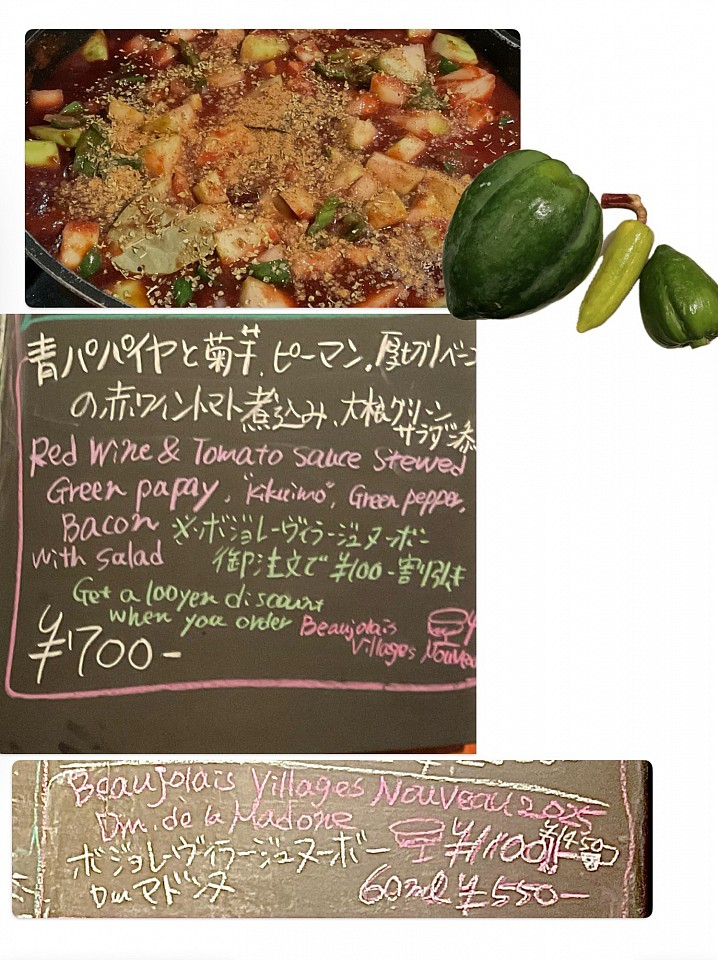 青パパイヤと菊芋、ピーマン、厚切りベーコ
の赤ワイントマト煮込み、大根グリーン
サラダ添
Red Wine & Tomato sauce stewed
Green papay, "Kikuimo", Green pepper,
Bacon ※ボジョレーヴィラージュヌーボー
with salad 御注文で¥100-割引き
Get a 100yen discount
when you order Beaujolais
Villages Nouveau
¥1700-
Beaujolais Villages Nouveau 2025
Dm. de la Madone
ボジョレーヴィラージュヌーボー ¥1100
Dm マドンヌ 60ml ¥550-